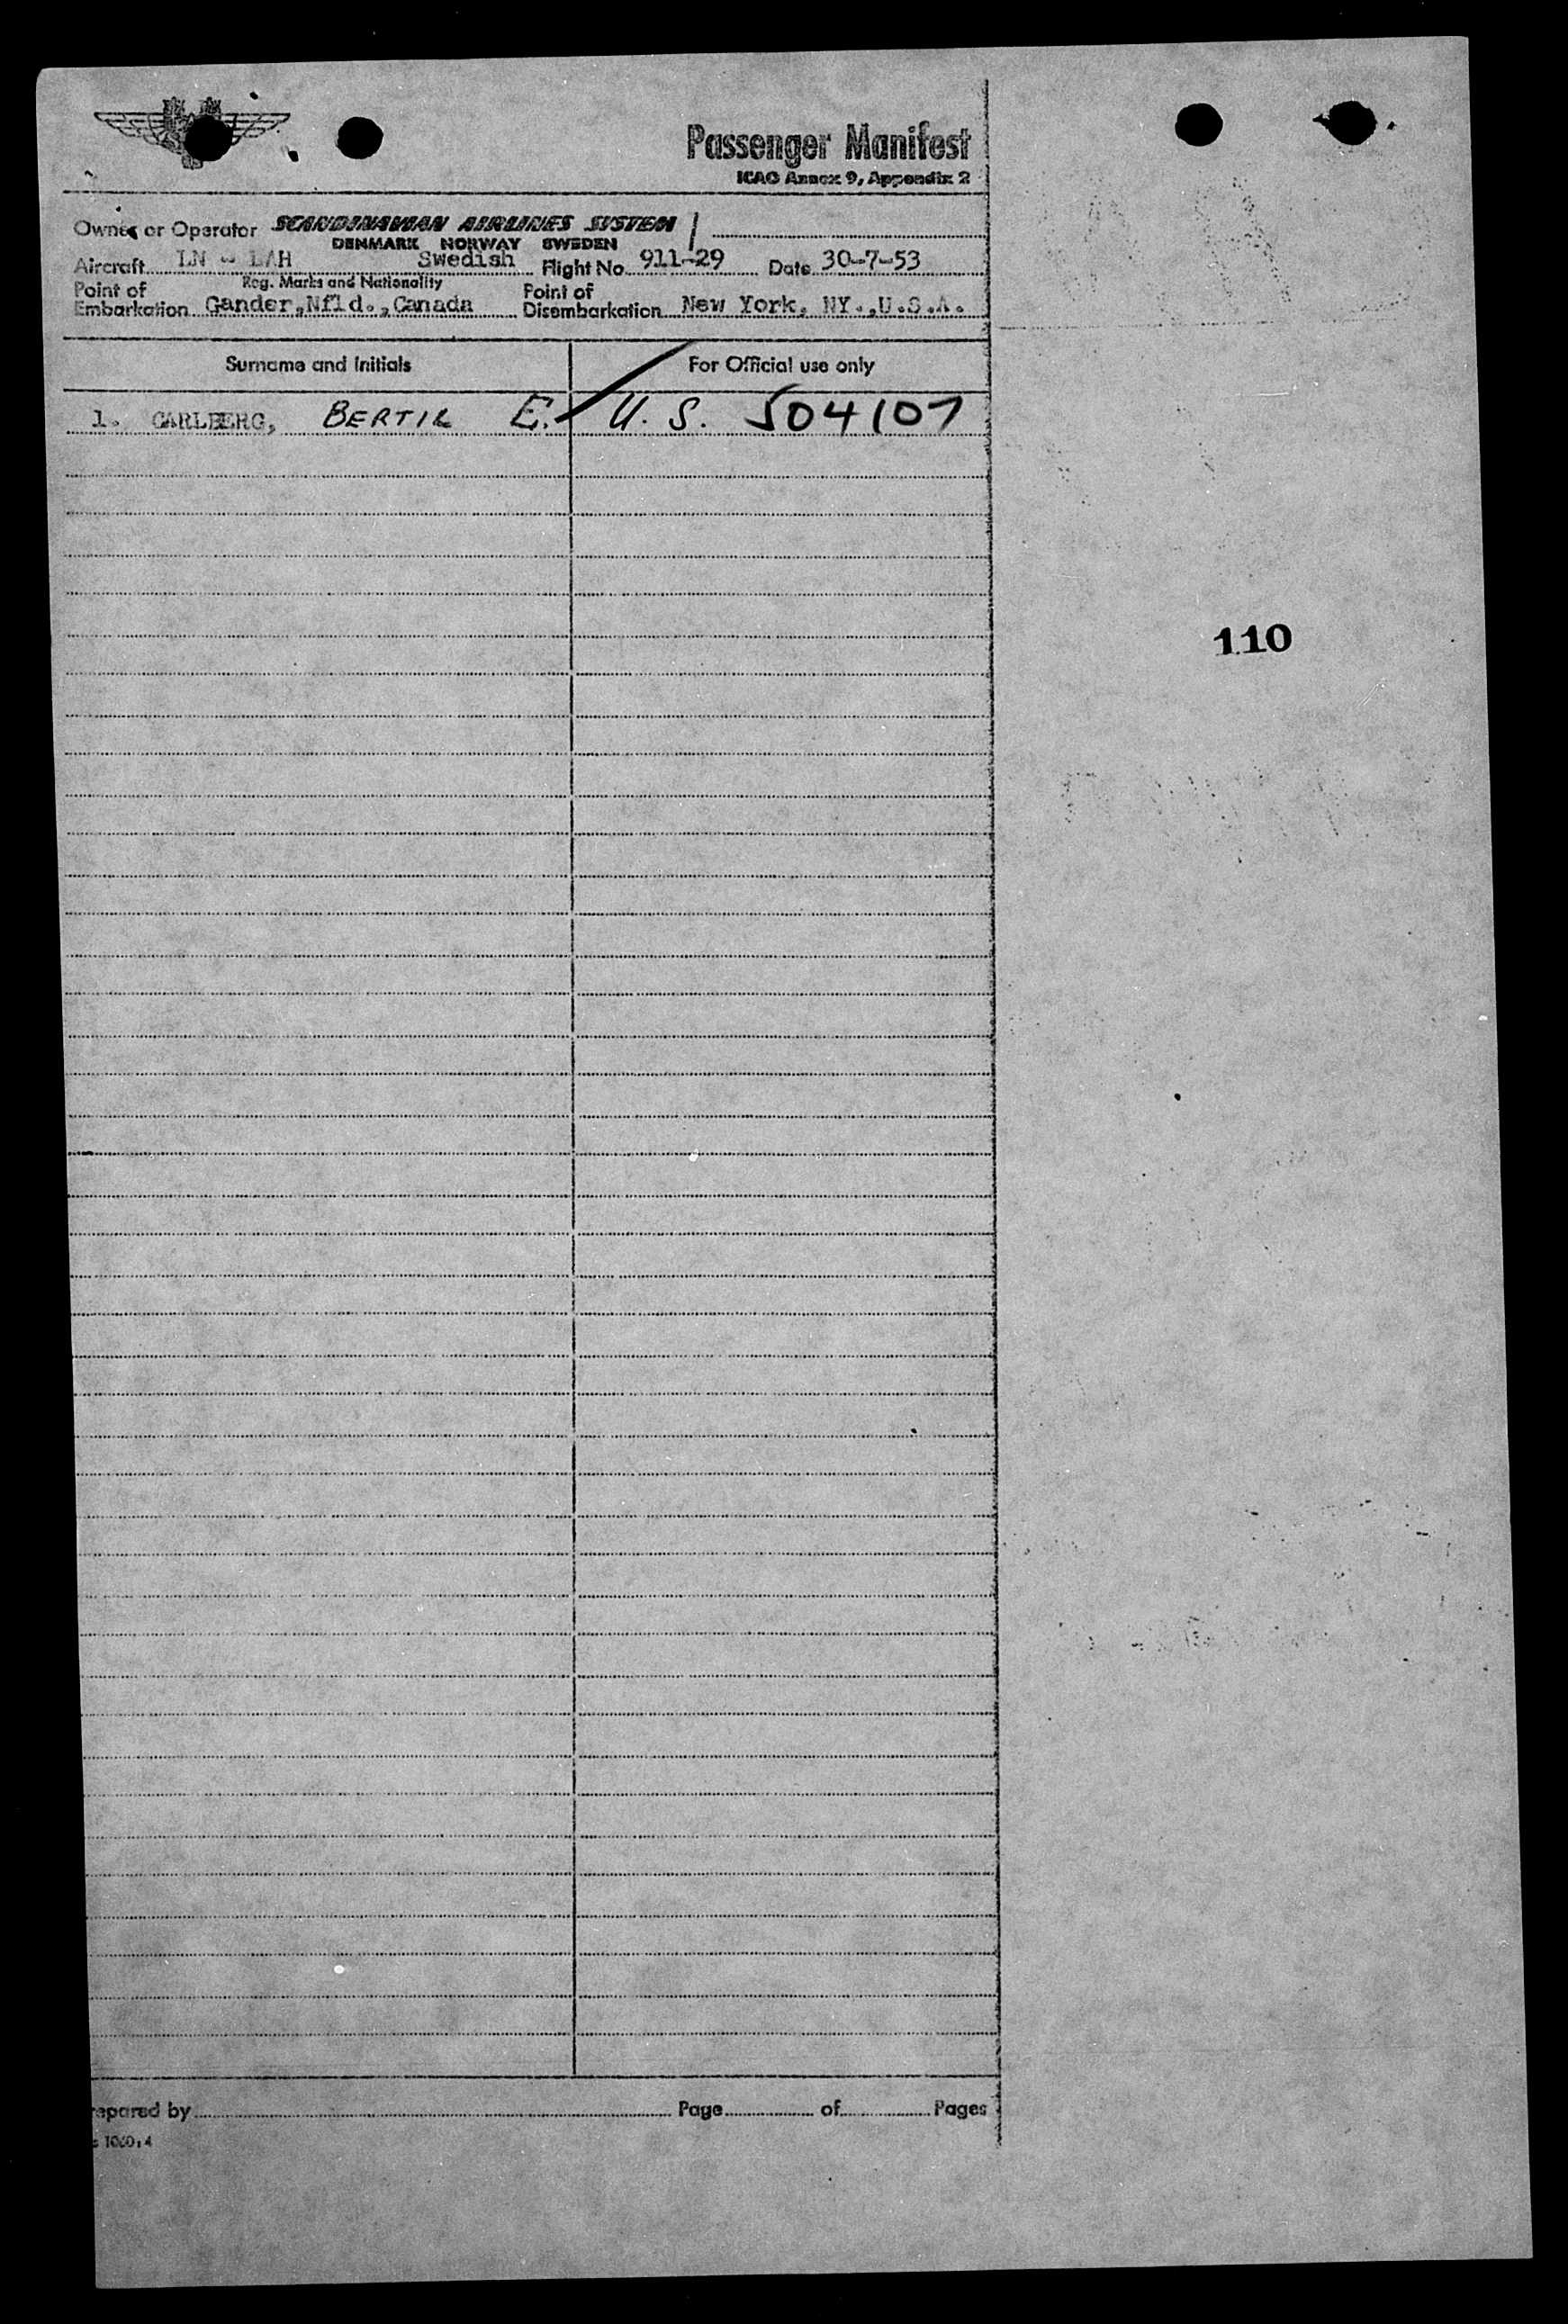 Passenger Manifest
ICAO Annex 9, Appendix 2
Owner or Operator SCANDINAVIAN AIRLINES SYSTEM
DENMARK NORWAY SWEDEN
Aircraft LN - LAH Swedish Flight No. 911-29 Date 30-7-53
Reg. Marks and Nationality
Point of Embarkation Gander,Nfld.,Canada Point of Disembarkation New York, NY.,U.S.A.
Surname and Initials For Official use only
1. CARLBERG, BERTIL E. U. S. 504107
110
repared by Page of Pages
s 1060:4